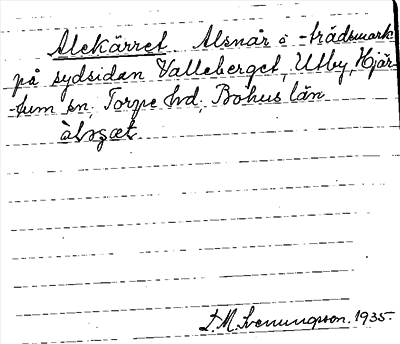 Alekärret. Alsnår å -trädsmark
på sydsidan Valleberget, Utby, Hjär-
tum sn, Torpe hd, Bohus län
D. M. Svenungsson. 1935.